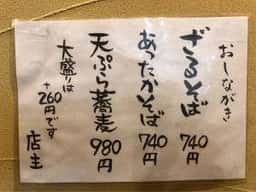 おしながき
ざるそば 740円
あったかそば 740円
天ぷら蕎麦 980円
大盛りは
+260円です
店主